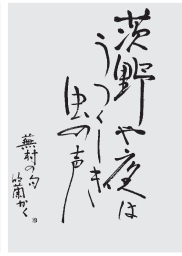 茨野や夜は
うつくしき
虫の声
蕪村の句
吟蘭かく